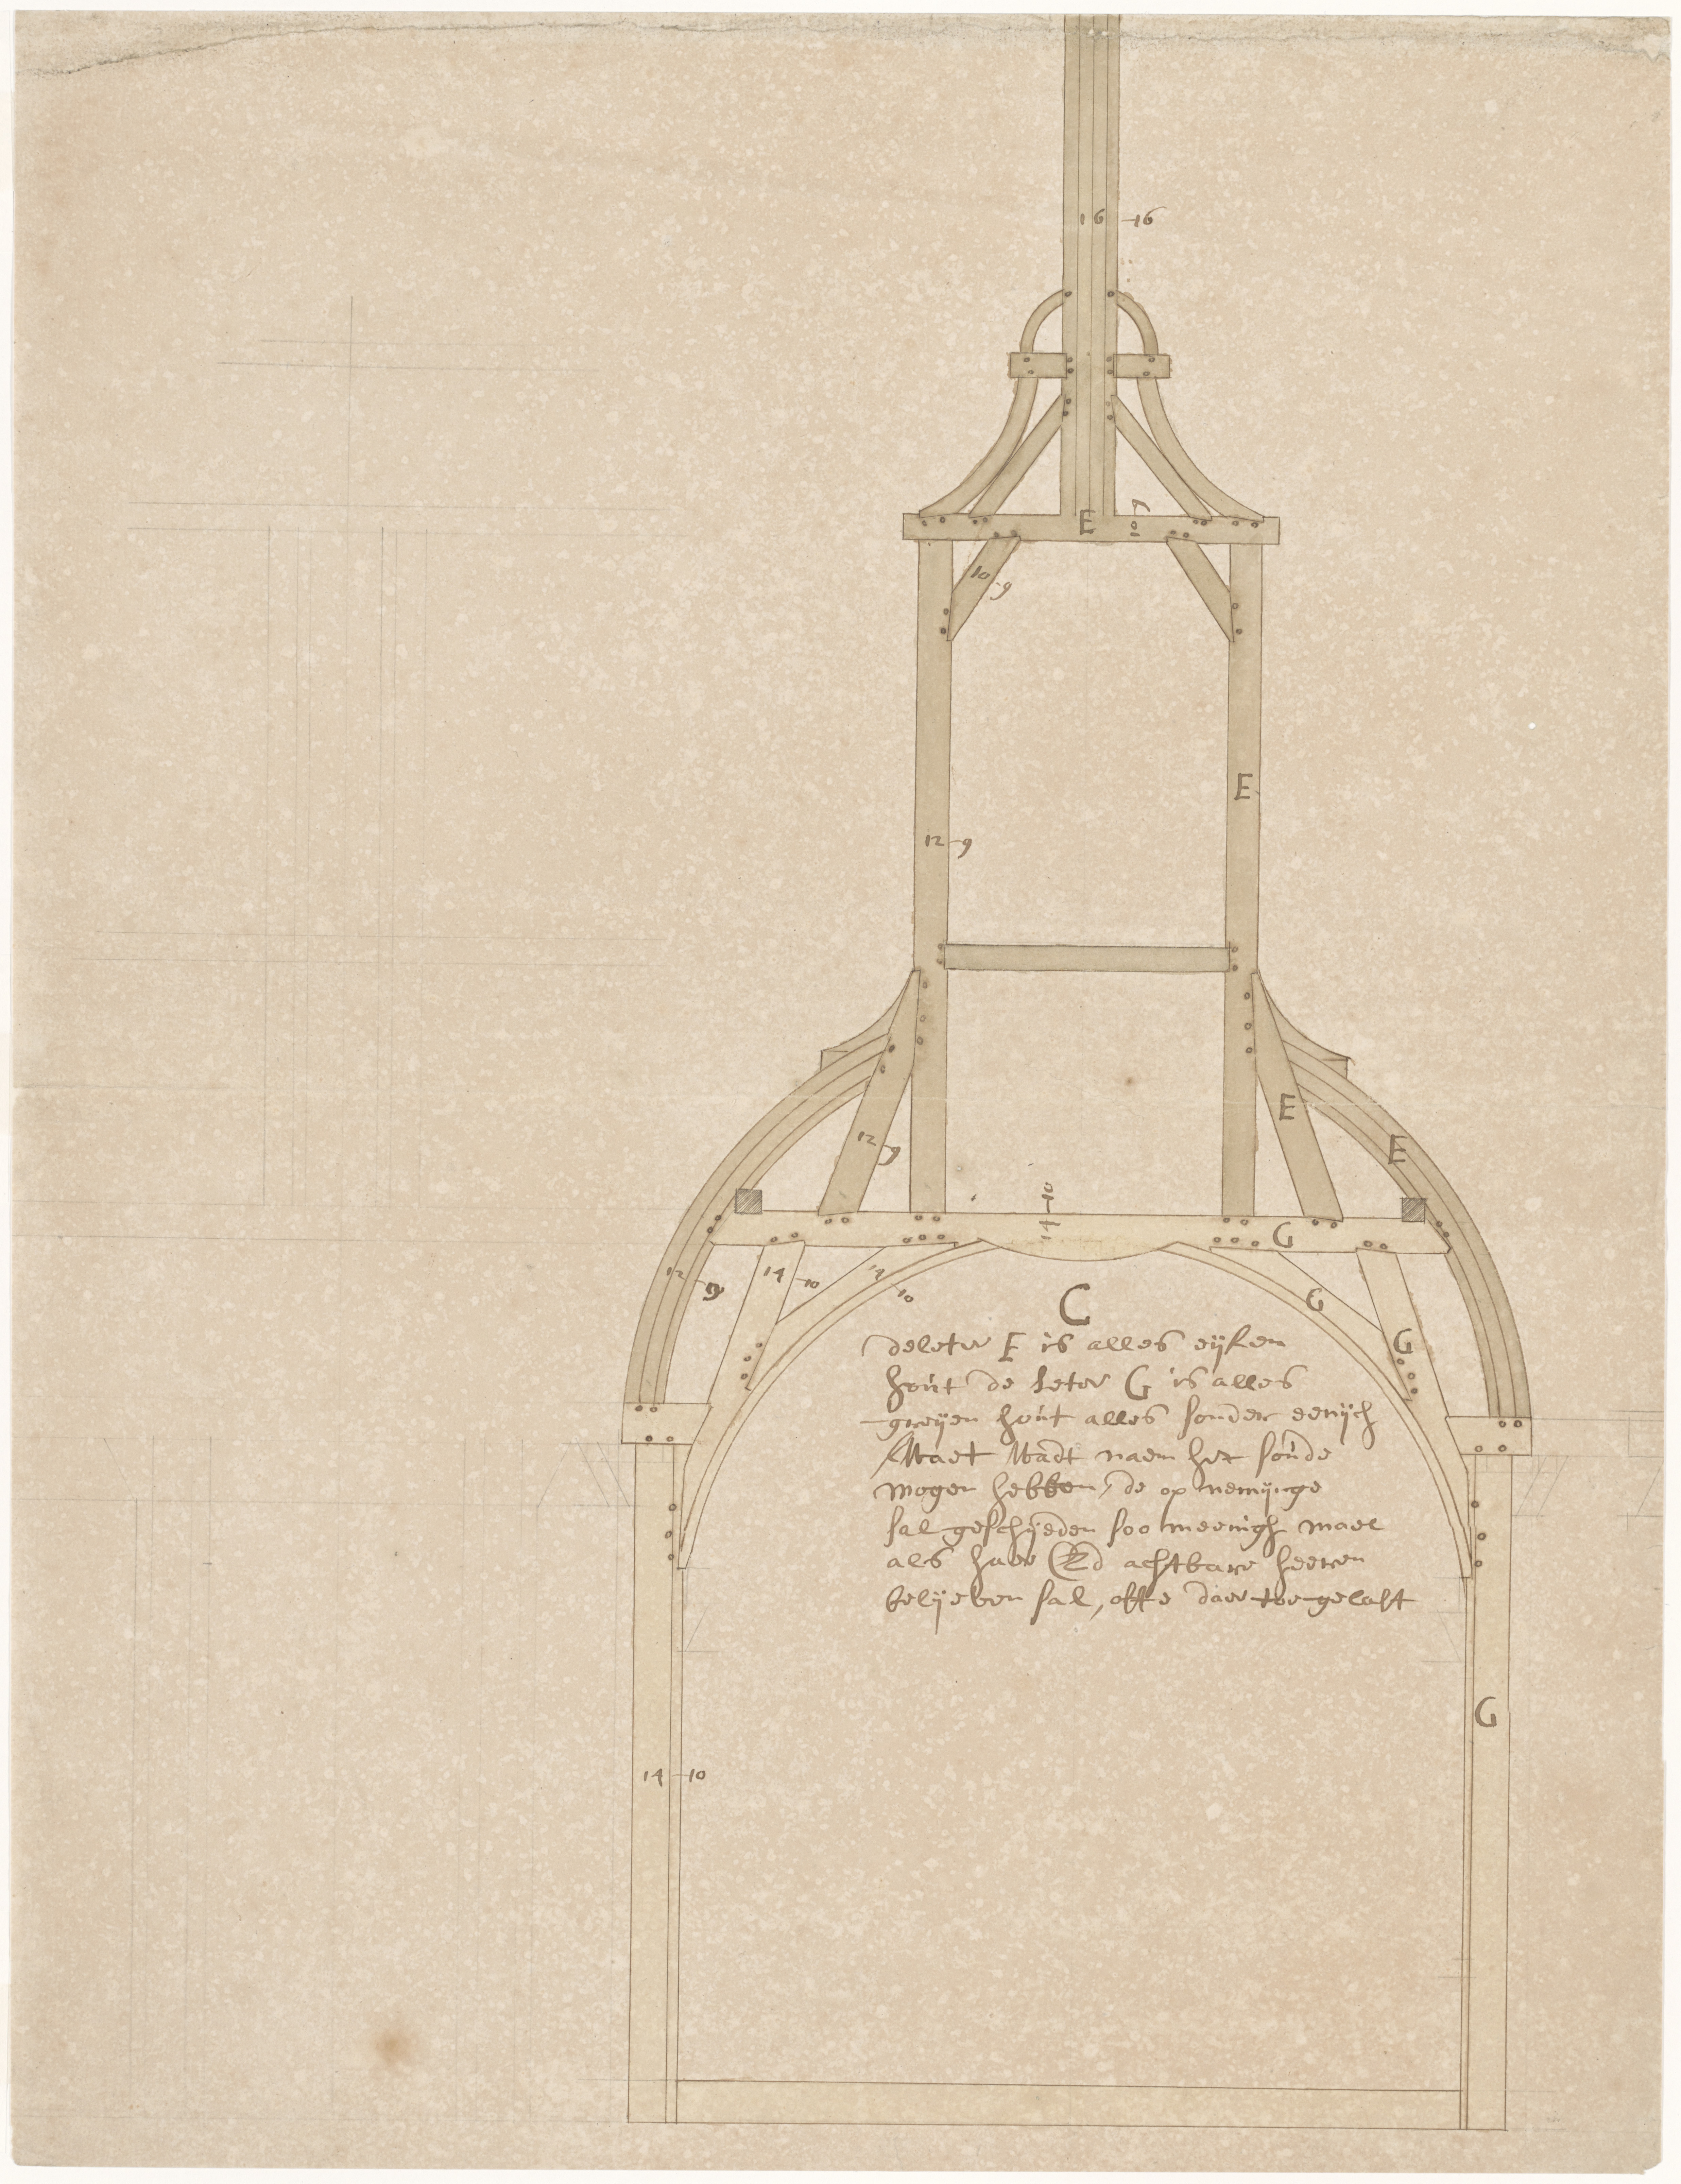 16 16
E 10 9
10 9
E
12 9
E
12 9
E
10
14
G
12 9
14 10
14 10
G
G
C
de leter E is alles eijken
hout de leter G is alles
greijen hout alles sonder eenich
Wadt naem het soude
mogen hebben, de op nemijnge
sal geschijeden soo meenigh mael
als haer Ed achtbare heeren
belijeben sal, offte daer toe gelast
G
14 10